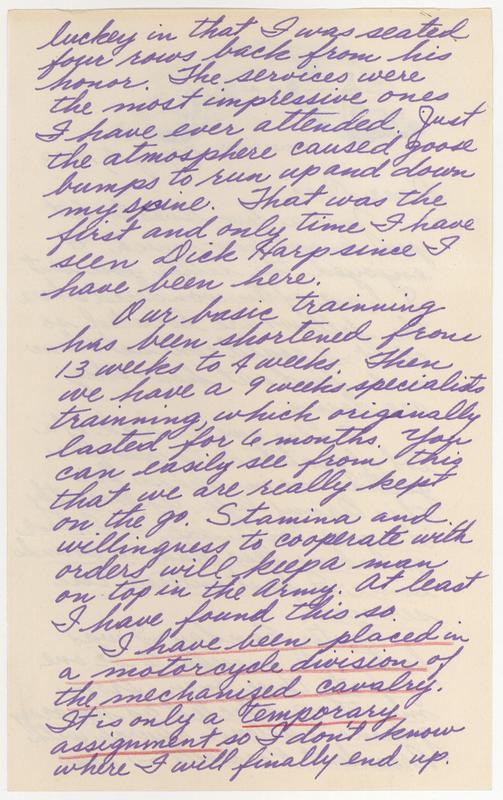 luckey in that I was seated
four rows back from his
honor. The services were
the most impressive ones
I have ever attended. Just
the atmosphere caused goose
bumps to run up and down
my spine. That was the
first and only time I have
seen Dick Harp since I
have been here.
Our basic trainning
has been shortened from
13 weeks to 4 weeks. Then
we have a 9 weeks specialists
trainning, which originally
lasted for 6 months. You
can easily see from this
that we are really kept
on the go. Stamina and
willingness to cooperate with
orders will keep a man
on top in the Army. At least
I have found this so.
I have been placed in
a motorcycle division of
the mechanized cavalry.
It is only a temporary
assignment so I don't know
where I will finally end up.